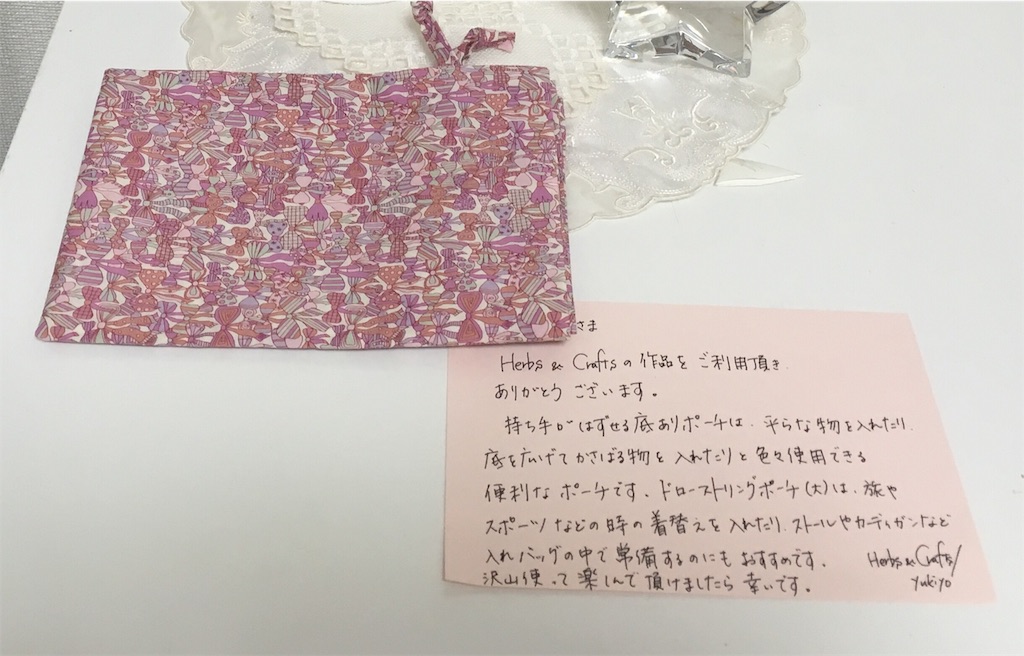 さま
Herbs & Crafts の 作品を ご利用頂き
ありがとう ございます。
持ち手が はずせる底ありポーチは、平らな物を入れたり、
底を広げて かさばる物を 入れたりと 色々使用できる
便利な ポーチです。ドローストリングポーチ(大)は、旅や
スポーツ などの 時の 着替えを 入れたり、ストールやカーディガンなど
入れ バッグの中で 常備するのにも おすすめです。
沢山使って 楽しんで 頂けましたら 幸いです。
Herbs & Crafts/
yukiyo